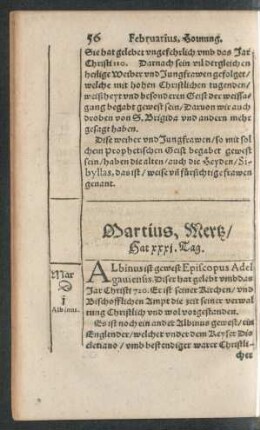 56 Februarius. Hornung.
Sie hat gelebet vngefehrlich vmb das Jar
Christi 110. Darnach sein vil dergleichen
heilige Weiber vnd Jungfrawen gefolget/
welche mit hohen Christlichen tugenden/
weißheyt vnd besonderen Geist der weissa-
gung begabt gewest sein/ Daruon wir auch
droben von S. Brigida vnd andern mehr
gesagt haben.
Dise weiber vnd Jungfrawen/ so mit sol
chem Prophetischen Geist begabet gewest
sein/ haben die alten/ auch die Heyden/ Si-
byllas, das ist/ weise vñ fürsichtige frawen
genant.
Martius, Mertz/
Hat xxxj. Tag.
Mar
D
i
Albinus.
ALbinus ist gewest Episcopus Adel
gauiensis. Diser hat gelebt vmb das
Jar Christi 720. Er ist seiner Kirchen/ vnd
Bischofflichen Ampt die zeit seiner verwal
tung Christlich vnd wol vorgestanden.
Es ist noch ein ander Albinus gewest/ ein
Englender/ welcher vnder dem Keyser Dio
cletiano / vmb bestendiger warer Christli-
cher